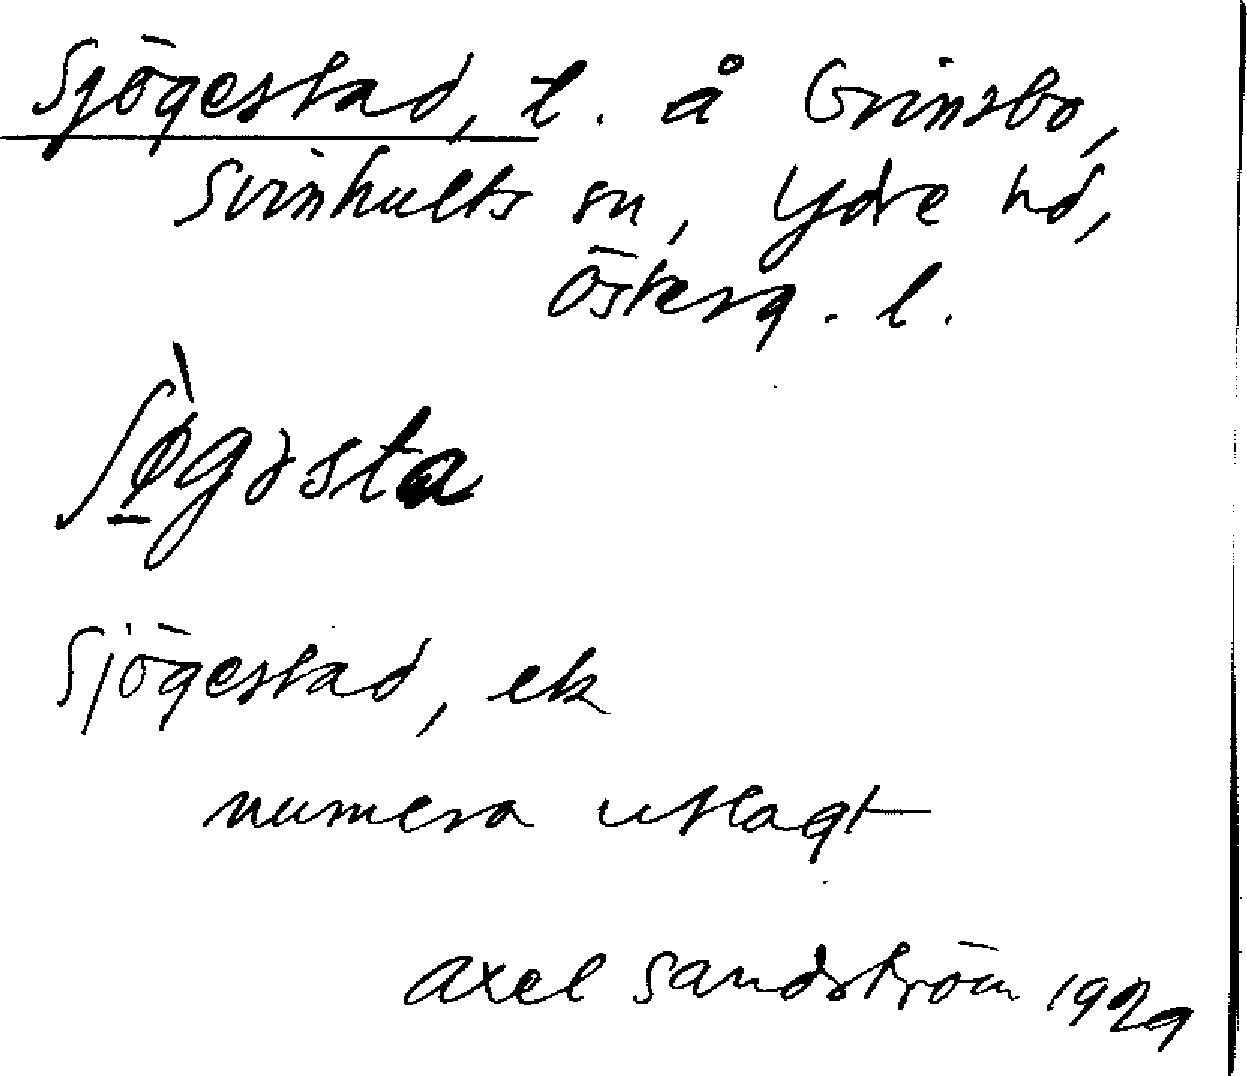 Sjögestad, t. å Grinsbo,
Svinhults sn, Ydre hd,
Österg. l.
ʃø̠̀gəsta
Sjögestad, ek
numera utlagt
Axel Sandström 1929